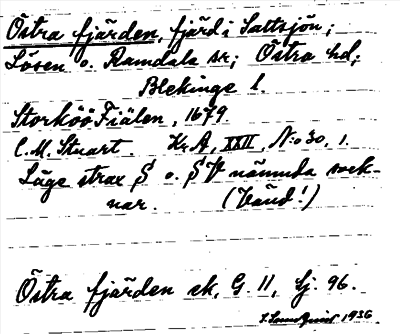 Östra fjärden, fjärd i Saltsjön;
Lösen o. Ramdala sn; Östra hd;
Blekinge l.
Storköö Fiälen, 1679.
C. M. Stuart. Kr.A, XXII, N:o 30, 1.
Läge strax S o. SV nämnda sock-
nar. (Vänd!)
Östra fjärden ek, G 11, Sj. 96.
1936.